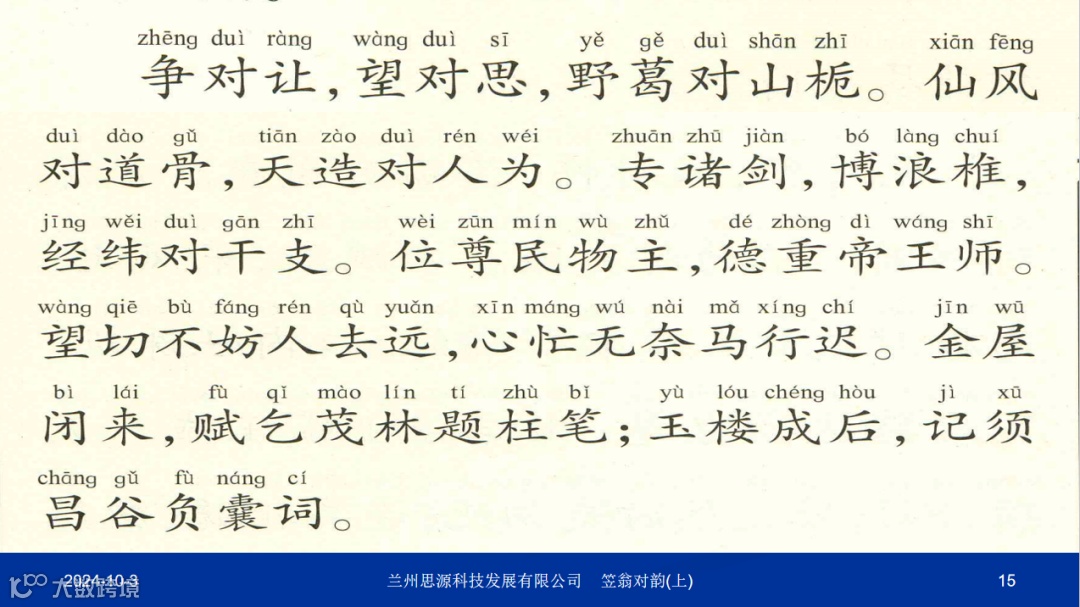 zhēng duì ràng wàng duì sī yě gě duì shān zhī xiān fēng
争对让,望对思,野葛对山栀。仙风
duì dào gǔ tiān zào duì rén wéi zhuān zhū jiàn bó làng chuí
对道骨,天造对人为。专诸剑,博浪椎,
jīng wěi duì gān zhī wèi zūn mín wù zhǔ dé zhòng dì wáng shī
经纬对干支。位尊民物主,德重帝王师。
wàng qiē bù fáng rén qù yuǎn xīn máng wú nài mǎ xíng chí jīn wū
望切不妨人去远,心忙无奈马行迟。金屋
bì lái fù qǐ mào lín tí zhù bǐ yù lóu chéng hòu jì xū
闭来,赋乞茂林题柱笔;玉楼成后,记须
chāng gǔ fù náng cí
昌谷负囊词。
2024-10-3 兰州思源科技发展有限公司 笠翁对韵(上) 15
大数跨境